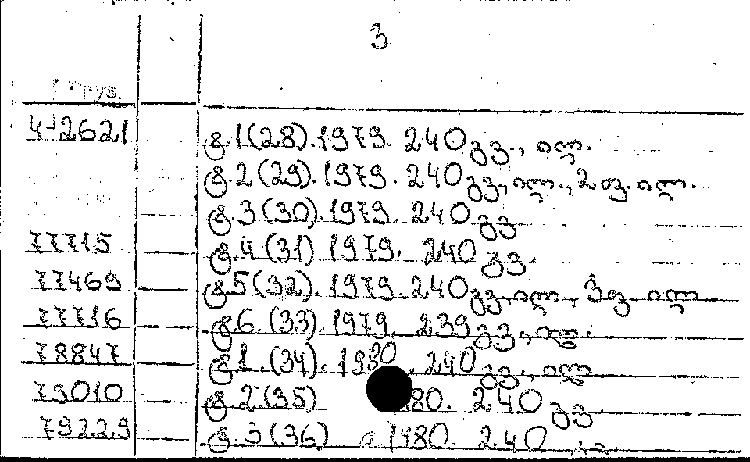 3
Груз.
4-2621 ტ.1(28).1979. 240გვ., ილ.
ტ.2(29).1979. 240გვ, ილ., 2 ფ. ილ.
ტ.3(30).1979. 240გვ
77715 ტ.4(31) 1979. 240 გვ.
77469 ტ.5(32). 1979. 240გვ, ილ., 3 ფ. ილ
77716 ტ.6.(33).1979. 239გვ., ილ.
78847 ტ.1.(34). 1980. 240გვ., ილ
79010 ტ.2(35) 80. 240 გვ
79229 ტ.3(36) 1980. 240